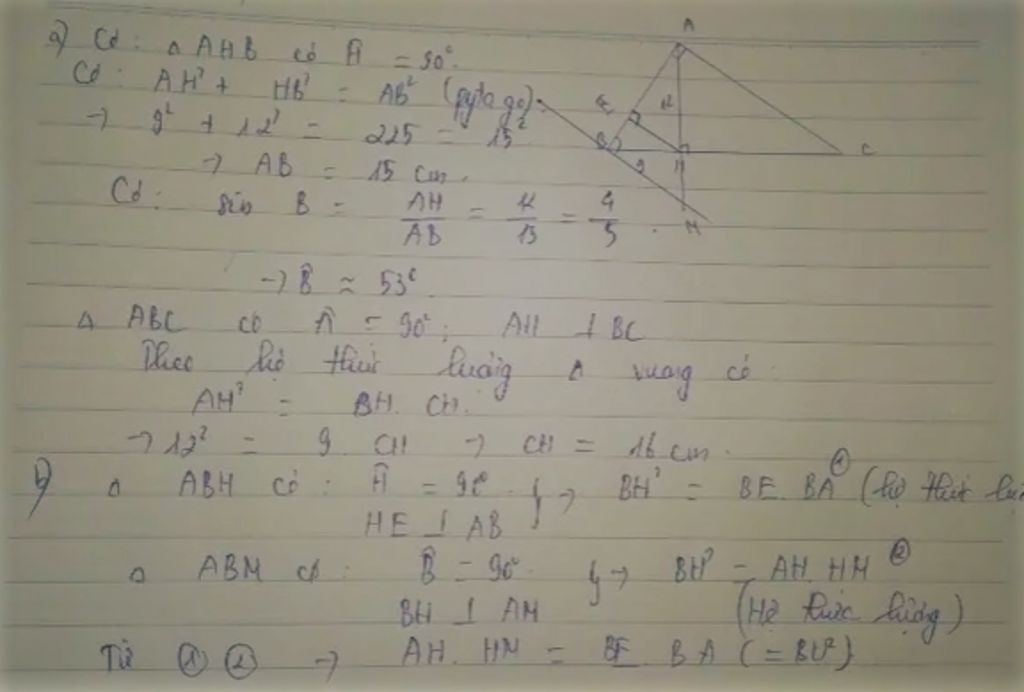 a) Có: Δ AHB có Ĥ = 90°.
Có: AH² + HB² = AB² (pytago).
→ 9² + 12² = 225 = 15²
→ AB = 15 cm.
Có: sin B = AH/AB = 12/15 = 4/5.
→ B̂ ≈ 53°
Δ ABC có Â = 90°; AH ⊥ BC
Theo hệ thức lượng Δ vuông có:
AH² = BH. CH.
→ 12² = 9. CH → CH = 16 cm.
b) Δ ABH có: Ĥ = 90°. } → BH² = BE. BA ① (hệ thức
HE ⊥ AB
Δ ABM có: B̂ = 90°. } → BH² = AH. HM ②
BH ⊥ AM (Hệ thức lượng)
Từ ① ② → AH. HM = BE. BA (= BH²)
A
E
12
B
9
H
C
M